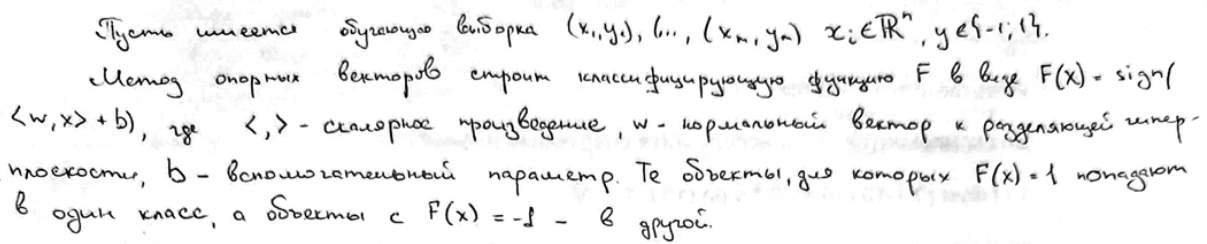 Пусть имеется обучающая выборка (x₁,y₁), (..., (xₘ, yₘ) xᵢ∈ℝⁿ, y∈{-1;1}.
Метод опорных векторов строит классифицирующую функцию F в виде F(x) = sign(
<w,x> + b), где <,> - скалярное произведение, w - нормальный вектор к разделяющей гипер-
плоскости, b - вспомогательный параметр. Те объекты, для которых F(x) = 1 попадают
в один класс, а объекты с F(x) = -1 - в другой.